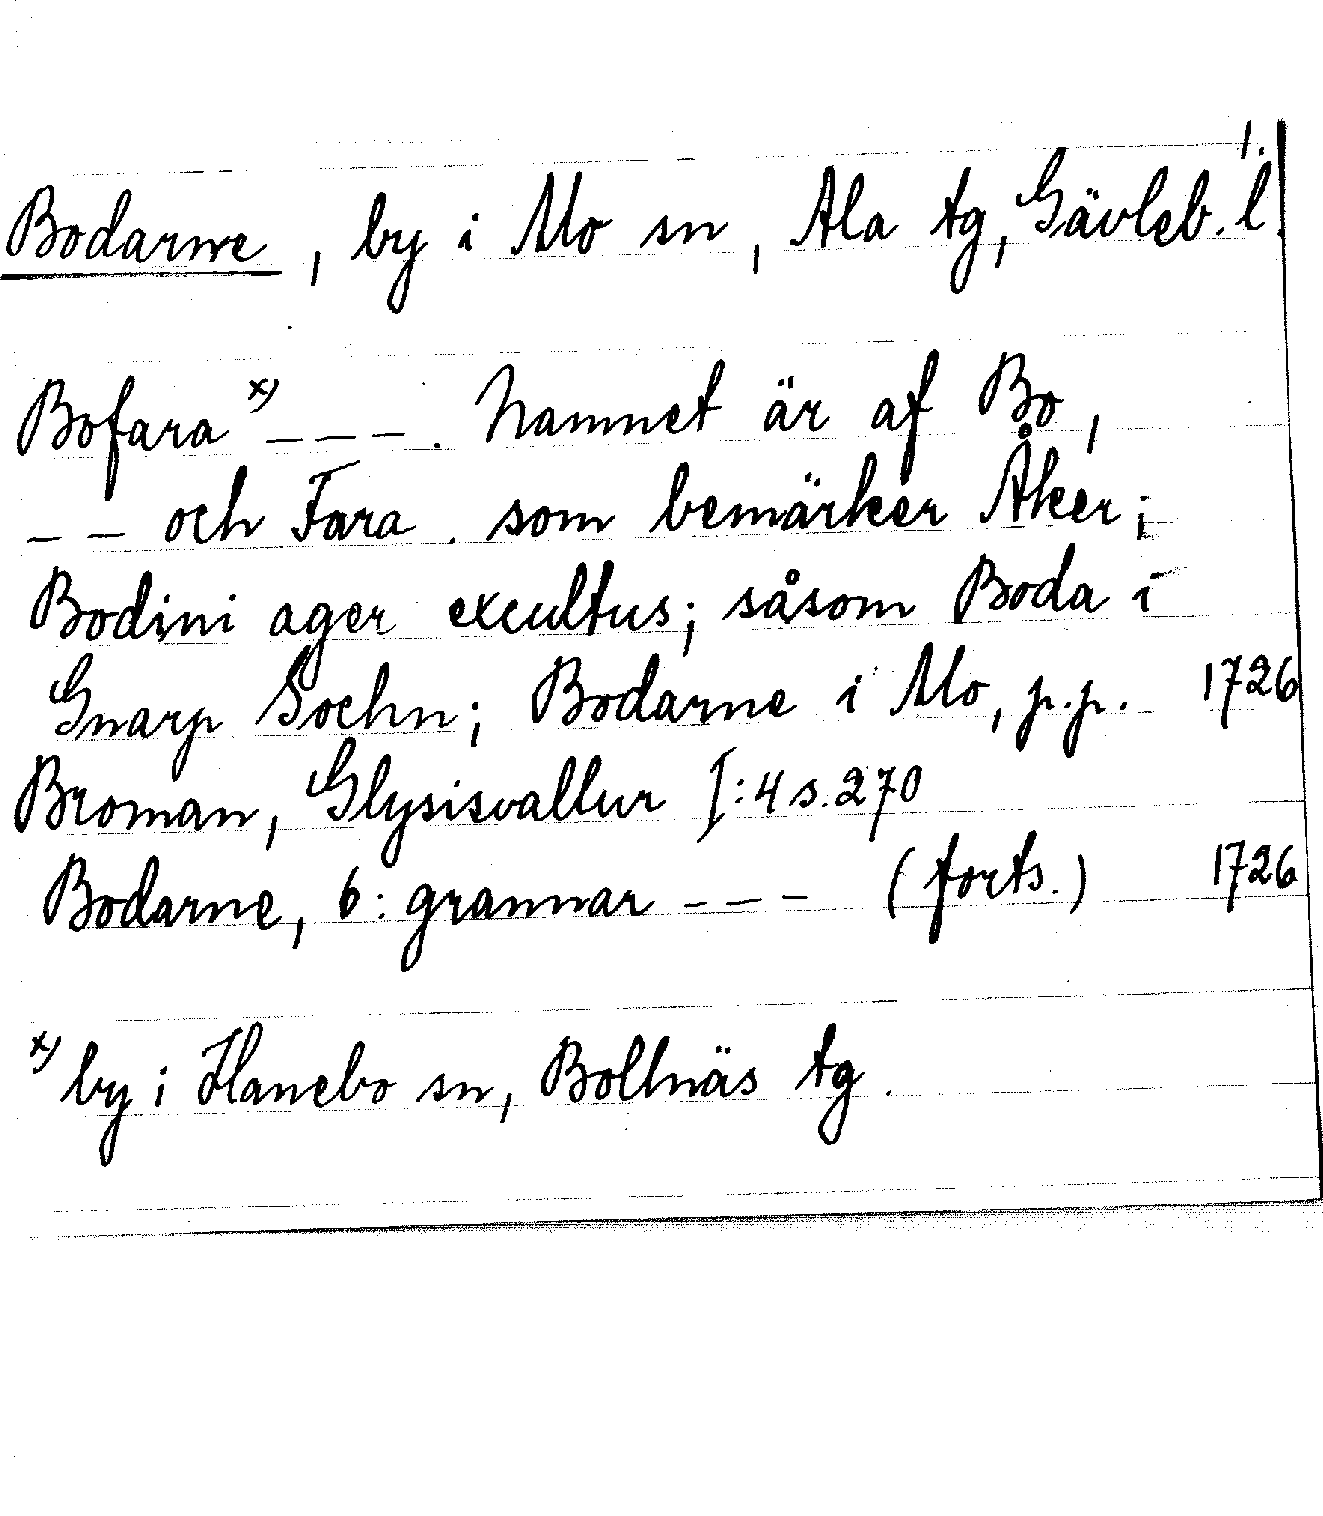 1.
Bodarne, by i Mo sn, Ala tg, Gävleb. l.
Bofara x) _ _ _. Namnet är af Bo,
_ _ och Fara. som bemärker Åker;
Bodini ager excultus; såsom Boda i
Gnarp Sochn; Bodarne i Mo, p.p. 1726
Broman, Glysisvallur I:4 s. 270
Bodarne, 6: grannar _ _ _ (forts.) 1726
x) by i Hanebo sn, Bollnäs tg.